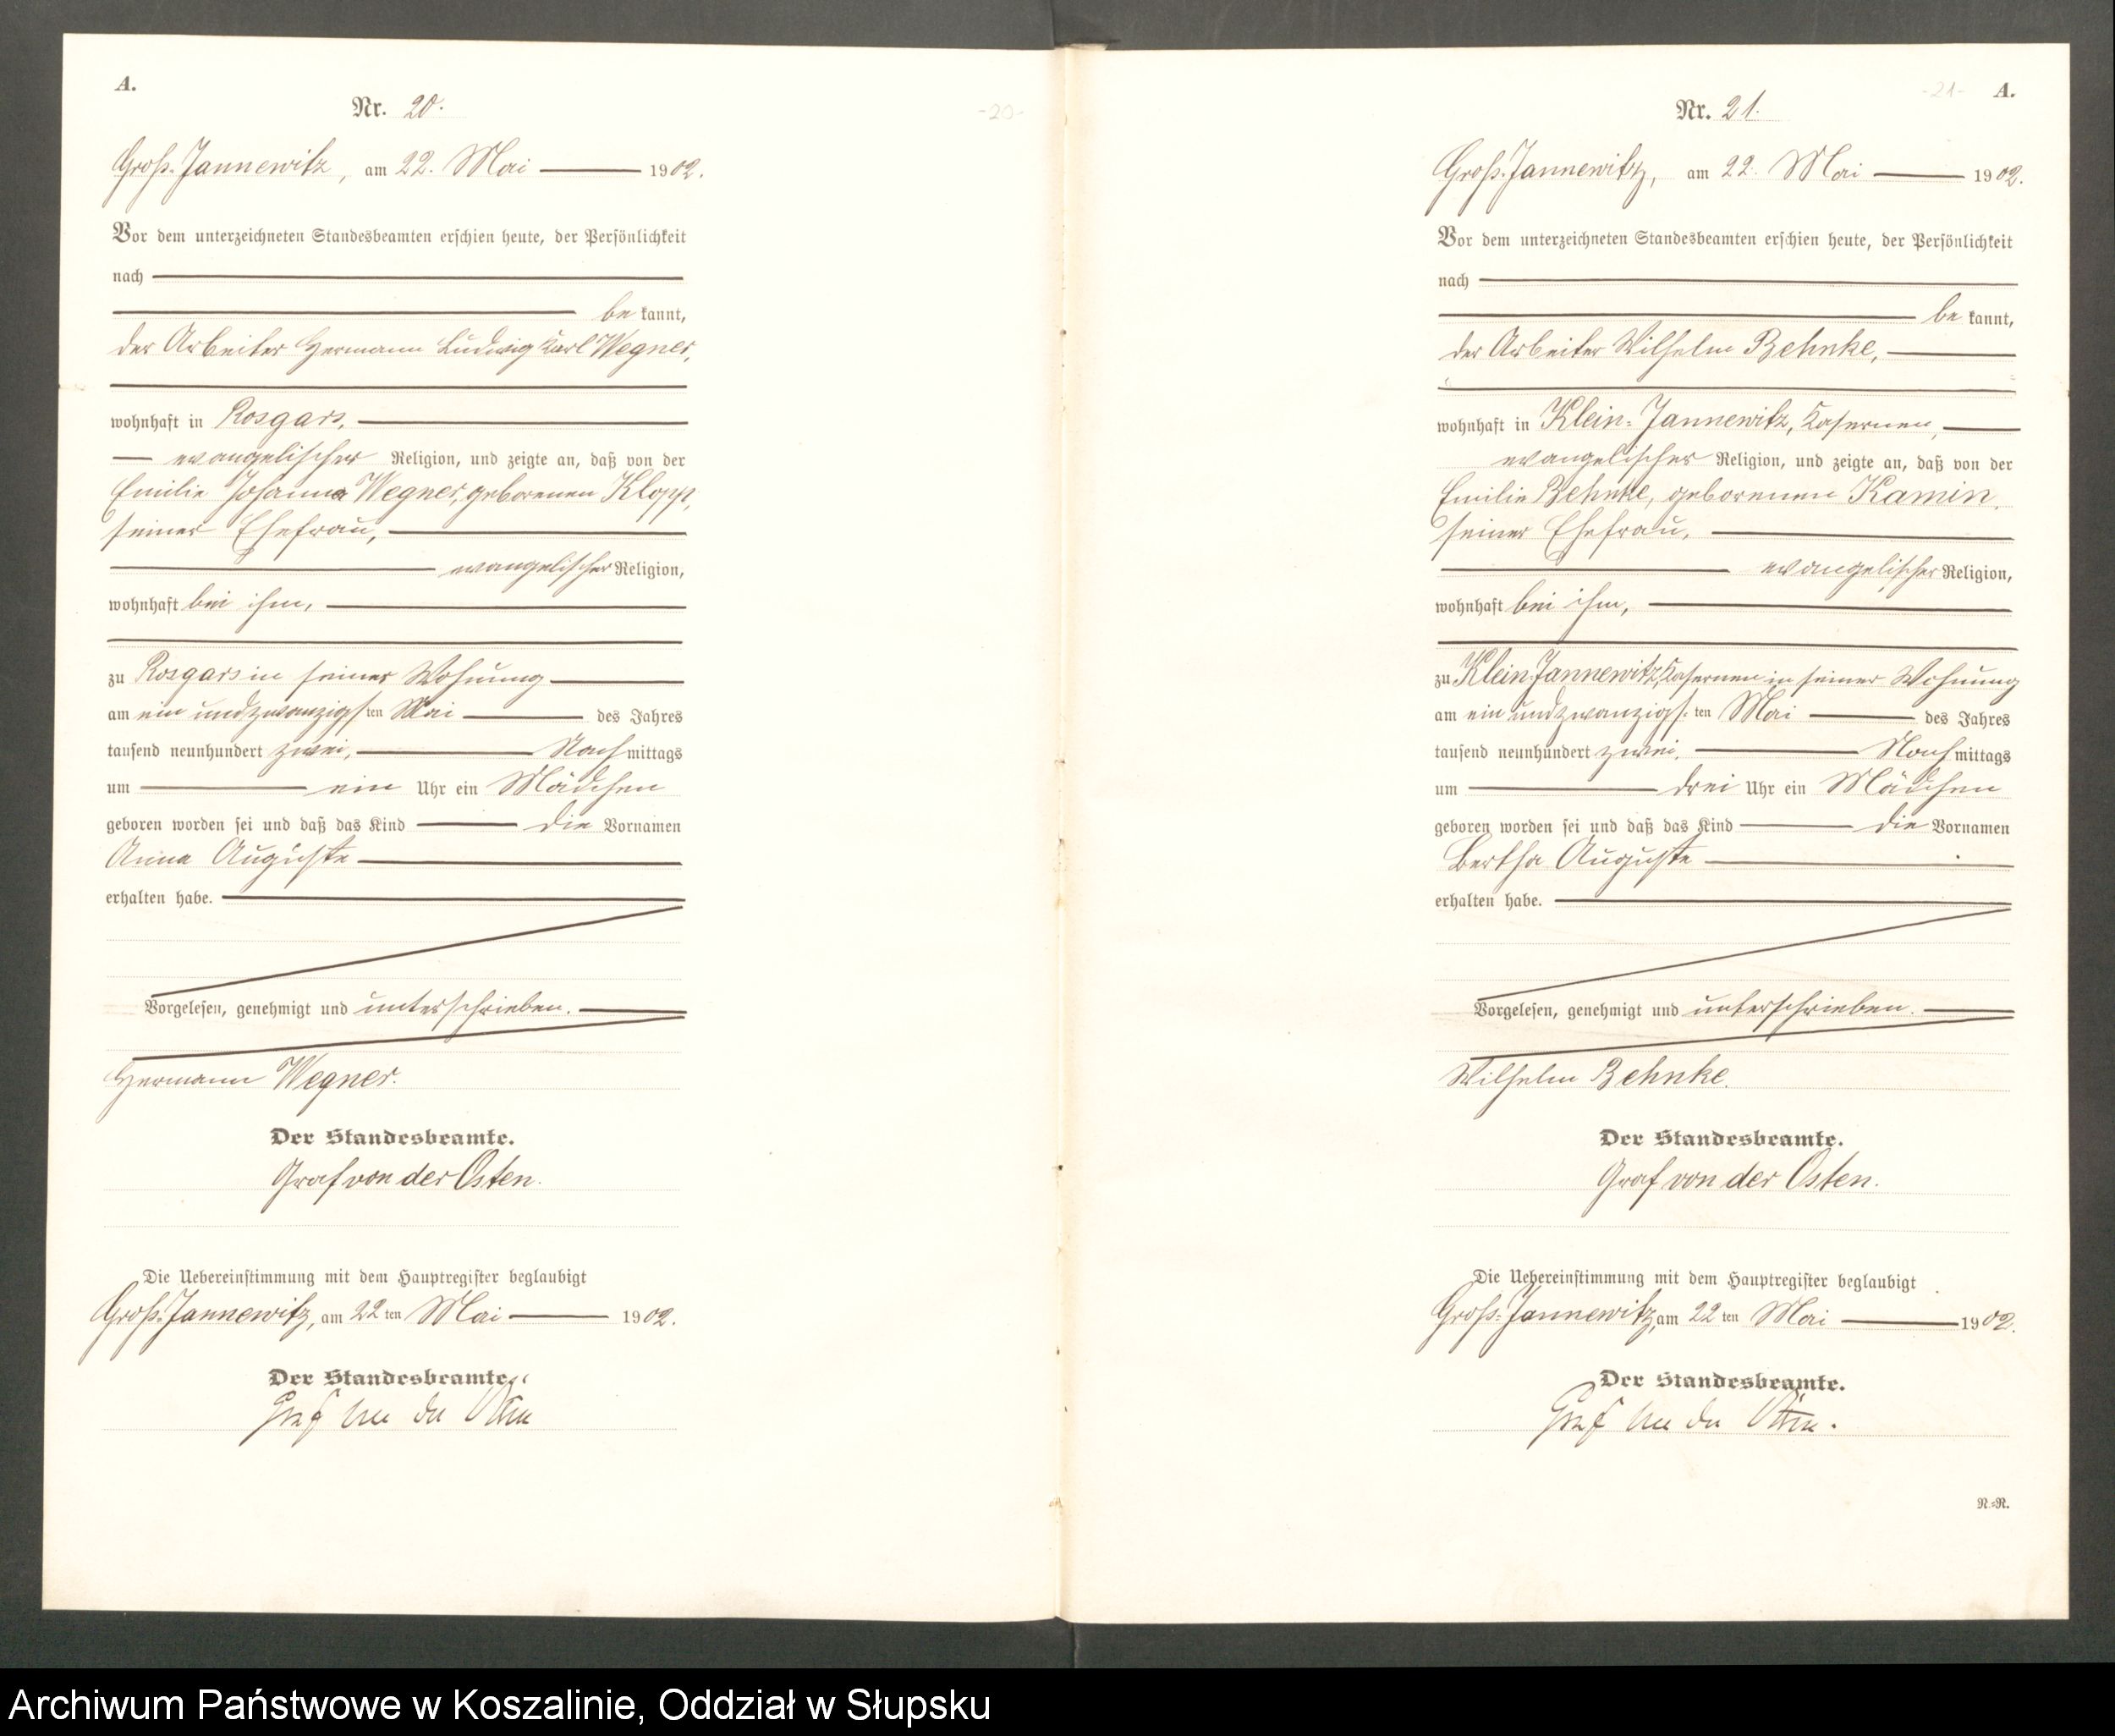 A.
Nr. 20.
-20-
Groß-Jannewitz, am 22. Mai 1902.
Vor dem unterzeichneten Standesbeamten erschien heute, der Persönlichkeit
nach
bekannt,
der Arbeiter Hermann Ludwig Karl Wegner,
wohnhaft in Rosgars,
evangelischer Religion, und zeigte an, daß von der
Emilie Johanna Wegner, geborenen Klopp,
seiner Ehefrau,
evangelischer Religion,
wohnhaft bei ihm,
zu Rosgars in seiner Wohnung
am ein und zwanzigsten Mai des Jahres
tausend neunhundert zwei, Nachmittags
um ein Uhr ein Mädchen
geboren worden sei und daß das Kind die Vornamen
Anna Auguste
erhalten habe.
Vorgelesen, genehmigt und unterschrieben.
Hermann Wegner.
Der Standesbeamte.
Graf von der Osten.
Die Uebereinstimmung mit dem Hauptregister beglaubigt
Groß-Jannewitz, am 22ten Mai 1902.
Der Standesbeamte.
Graf von der Osten
-21- A.
Nr. 21.
Groß-Jannewitz, am 22. Mai 1902.
Vor dem unterzeichneten Standesbeamten erschien heute, der Persönlichkeit
nach
bekannt,
der Arbeiter Wilhelm Behnke,
wohnhaft in Klein-Jannewitz, Kasernen,
evangelischer Religion, und zeigte an, daß von der
Emilie Behnke, geborenen Kamin,
seiner Ehefrau,
evangelischer Religion,
wohnhaft bei ihm,
zu Klein-Jannewitz, Kasernen in seiner Wohnung
am ein und zwanzigs.ten Mai des Jahres
tausend neunhundert zwei, Nachmittags
um drei Uhr ein Mädchen
geboren worden sei und daß das Kind die Vornamen
Bertha Auguste
erhalten habe.
Vorgelesen, genehmigt und unterschrieben.
Wilhelm Behnke.
Der Standesbeamte.
Graf von der Osten.
Die Uebereinstimmung mit dem Hauptregister beglaubigt
Groß-Jannewitz, am 22ten Mai 1902.
Der Standesbeamte.
Graf von der Osten.
N.-N.
Archiwum Państwowe w Koszalinie, Oddział w Słupsku